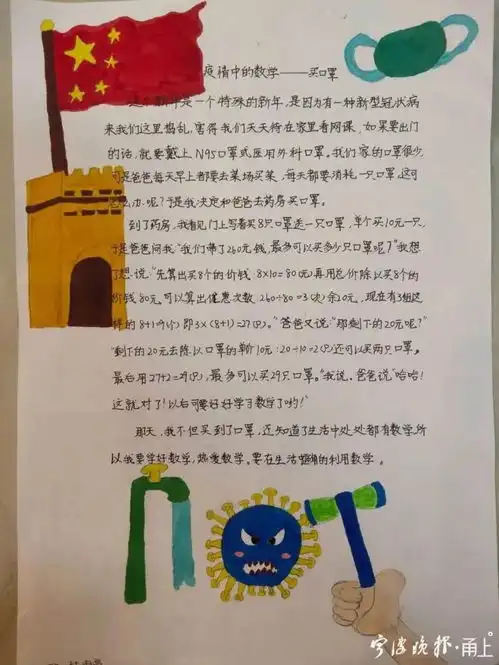 疫情中的数学——买口罩
这个新年是一个特殊的新年,是因为有一种新型冠状病
来我们这里捣乱,害得我们天天待在家里看网课,如果要出门
的话,就要戴上N95口罩或医用外科口罩。我们家的口罩很少,
可是爸爸每天早上都要去菜场买菜,每天都要消耗一只口罩,这可
怎么办呢?于是我决定和爸爸去药房买口罩。
到了药房,我看见门上写着买8只口罩送一只口罩,单个买10元一只,
于是爸爸问我“我们带了260元钱,最多可以买多少只口罩呢?”我想
了想说:“先算出买8个的价钱,8×10=80(元)再用总价除以买8个的
价钱80元,可以算出优惠次数,260÷80=3(次)余20元,现在有3组这
样的8+1=9(个)即3×(8+1)=27(只)。”爸爸又说:“那剩下的20元呢?”
“剩下的20元去除以口罩的单价10元:20÷10=2(只)还可以买两只口罩。
最后用27+2=29(只),最多可以买29只口罩。”我说。爸爸说“哈哈!
这就对了!以后可要好好学习数学了哟!”
那天,我不但买到了口罩,还知道了生活中处处都有数学,所
以我要学好数学,热爱数学。要在生活中的利用数学。
宁波晚报·甬上